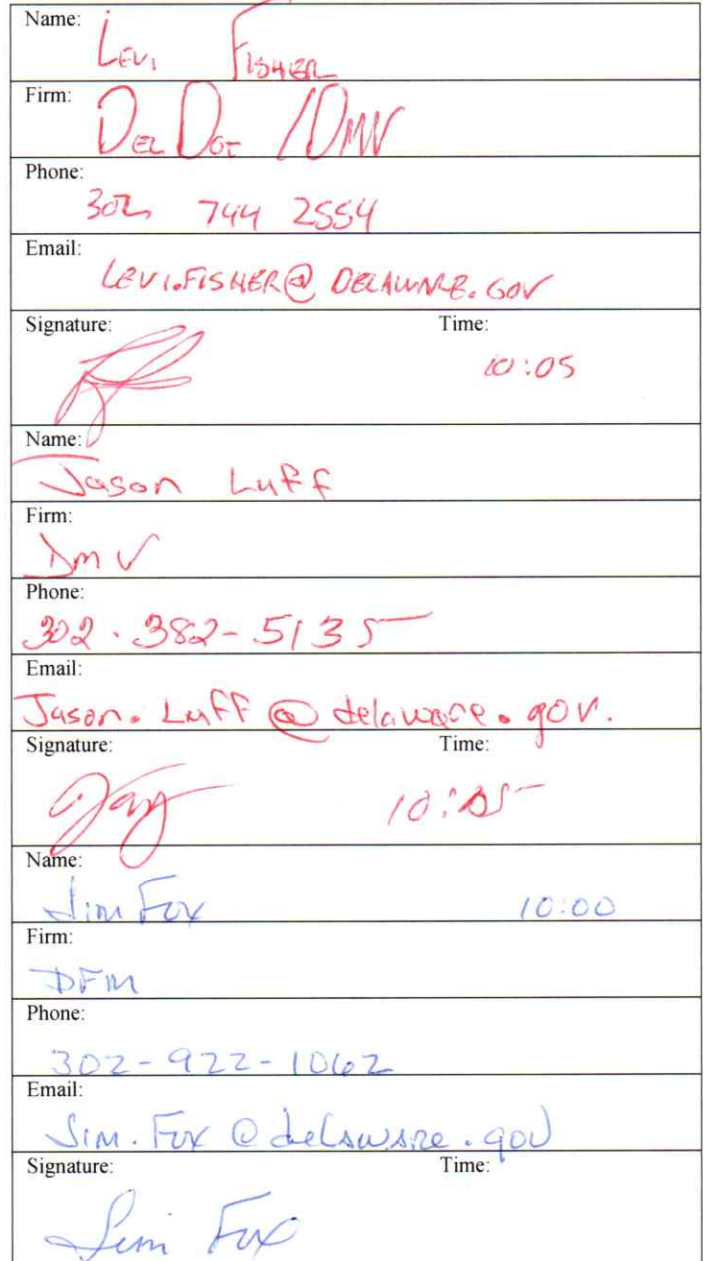 Name:
Levi Fisher
Firm:
DelDot / DMV
Phone:
302 744 2554
Email:
LEVI.FISHER@DELAWARE.GOV
Signature: Time:
10:05
Name:
Jason Luff
Firm:
Dmv
Phone:
302.382-5135
Email:
Jason.Luff@delaware.gov.
Signature: Time:
Name:
Jim Fox 10:00
Firm:
DFM
Phone:
302-922-1062
Email:
Jim.Fox@delaware.gov
Signature: Time:
Jim Fox